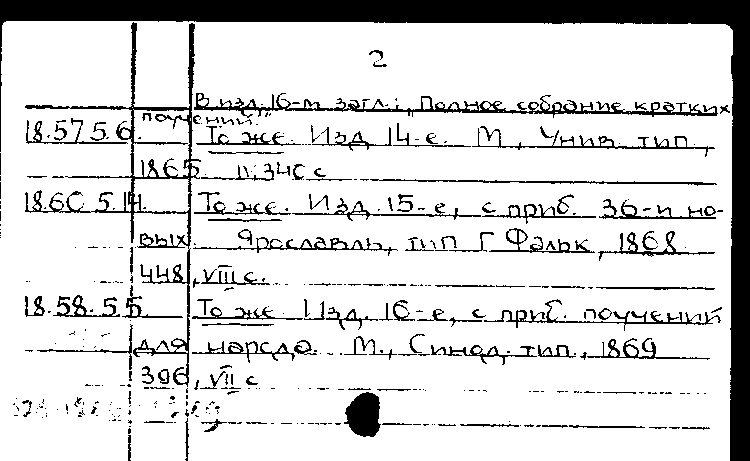 2
В изд. 16-м загл.: „Полное собрание кратких
поучений."
18.57.5.6. То же. Изд. 14-е. М., Унив. тип.,
1865. II, 340 с.
18.60.5.14. То же. Изд. 15-е, с приб. 36-и но-
вых. Ярославль, тип. Г. Фальк, 1868.
448, VIII с.
18.58.5.5. То же. Изд. 16-е, с приб. поучений
для народа. М., Синод. тип., 1869
396, VII с.